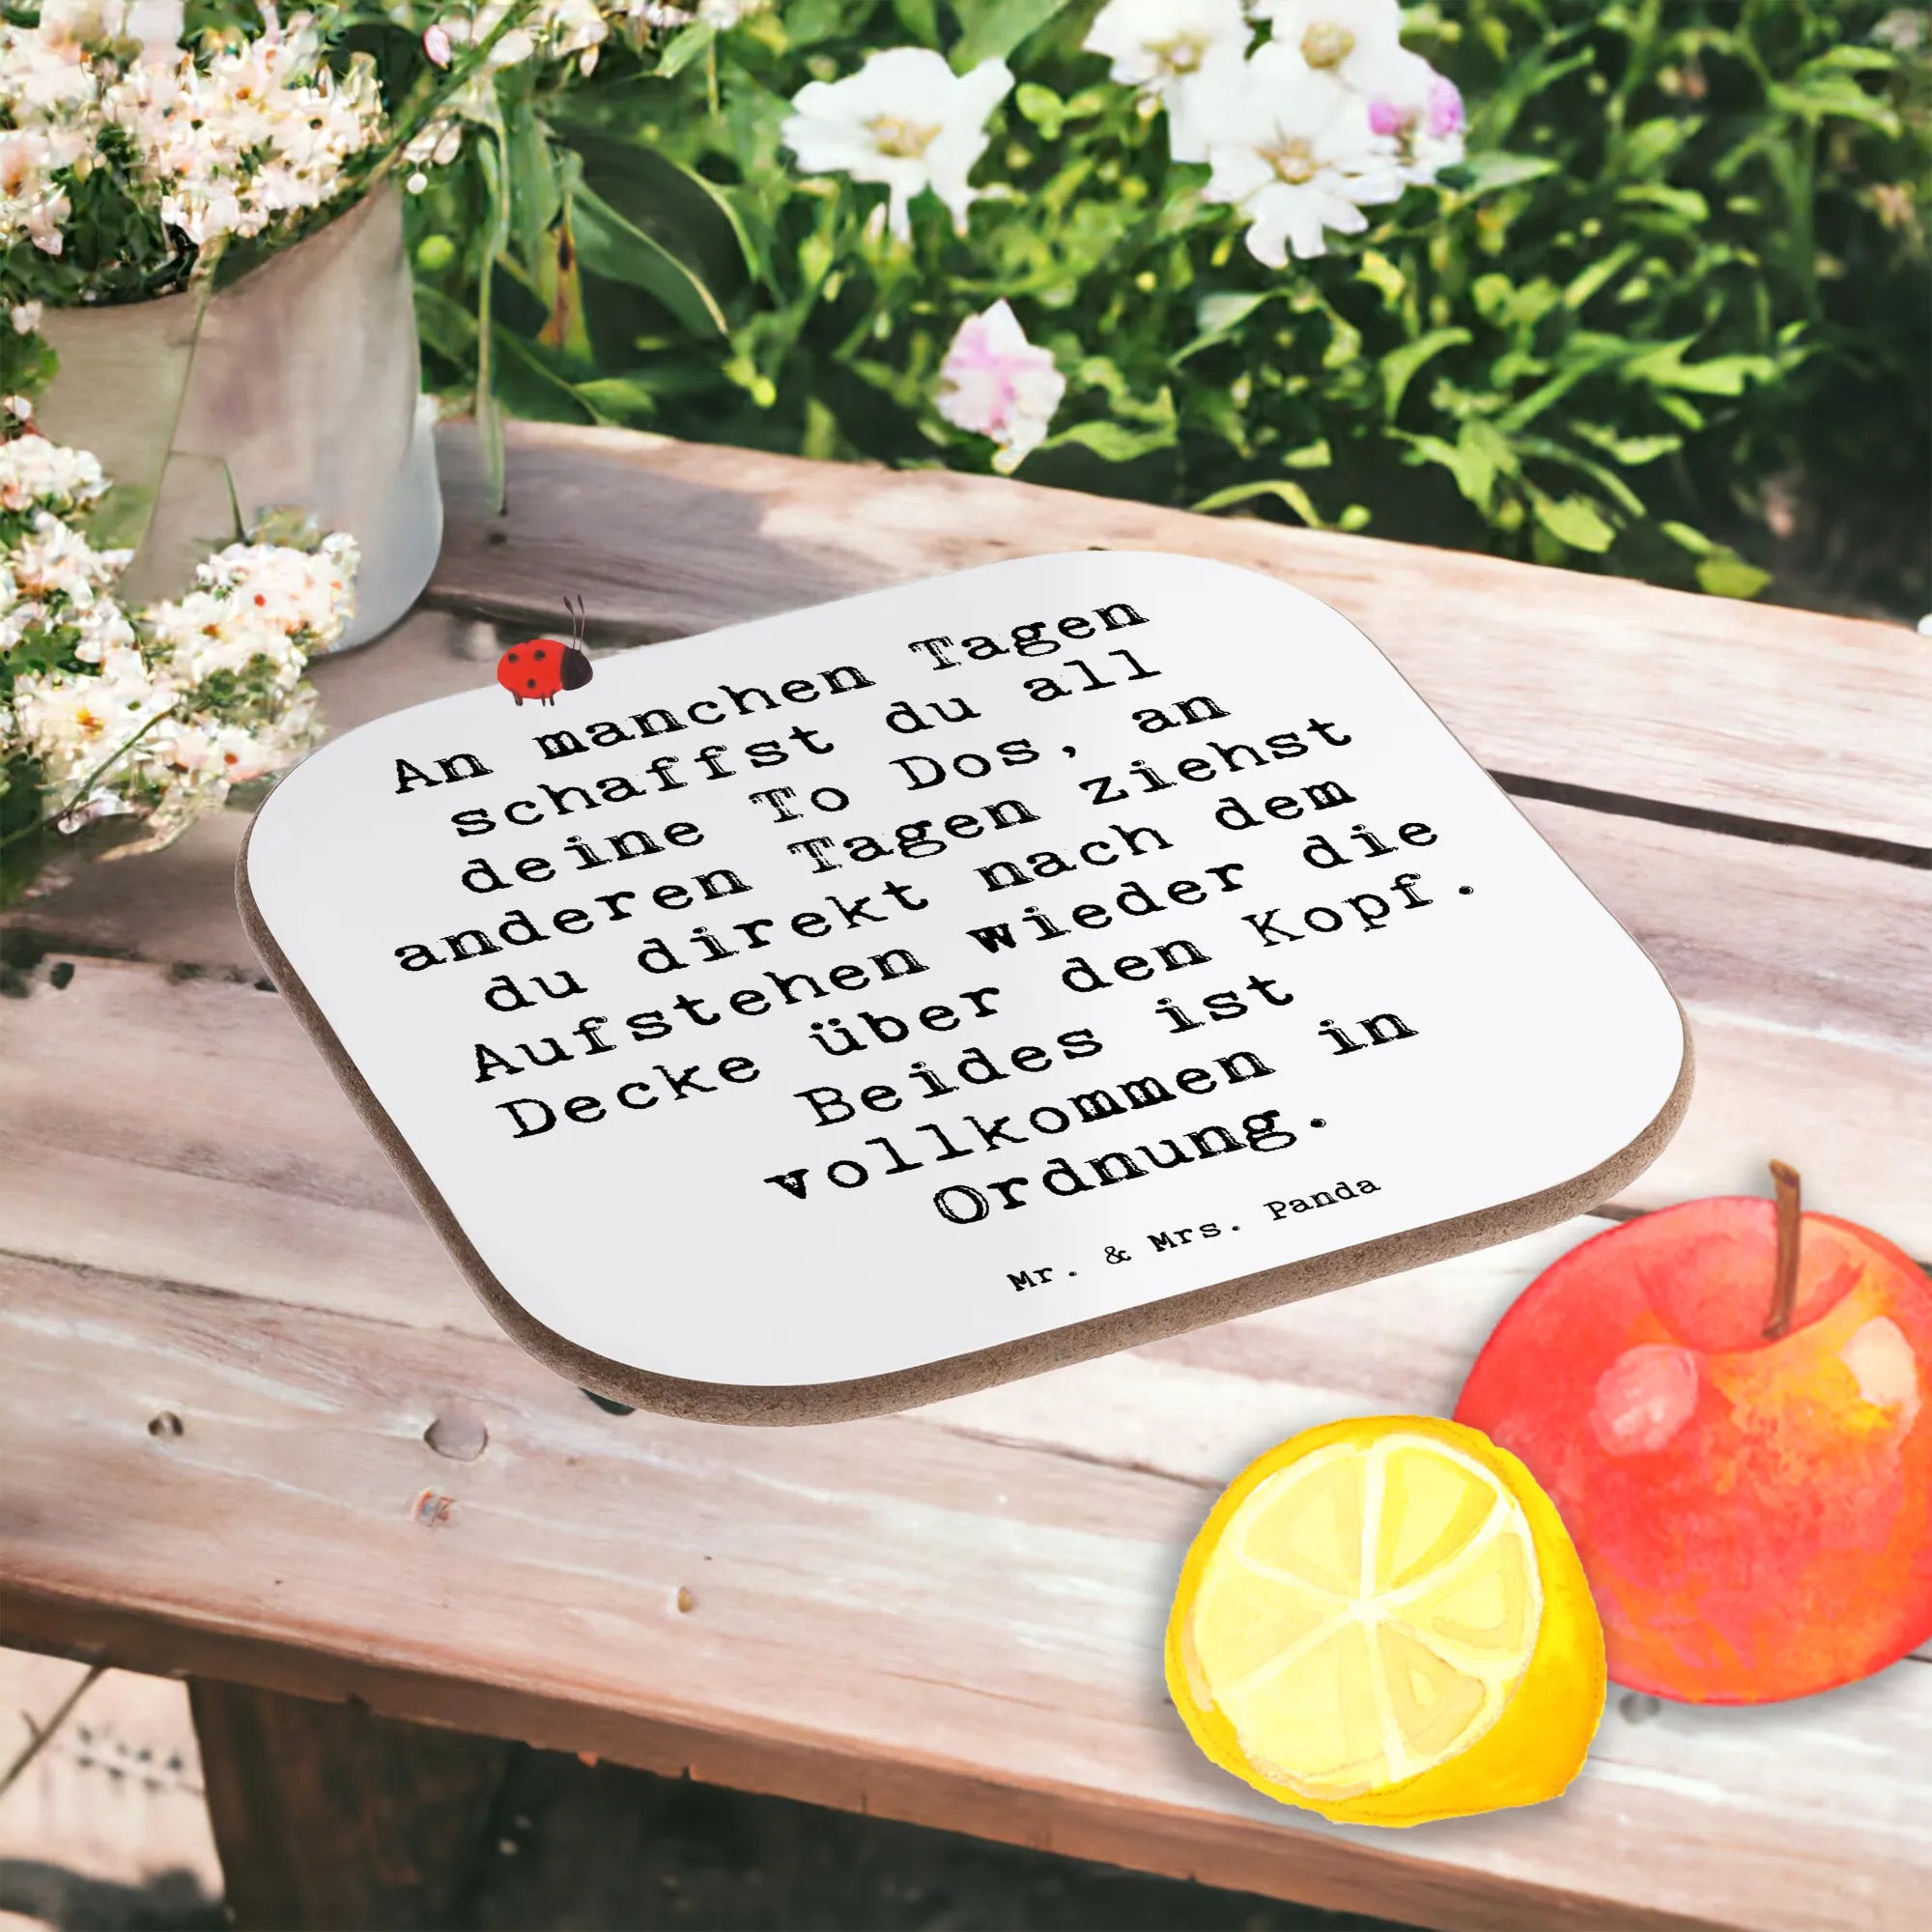 An manchen Tagen
schaffst du all
deine To Dos, an
anderen Tagen ziehst
du direkt nach dem
Aufstehen wieder die
Decke über den Kopf.
Beides ist
vollkommen in
Ordnung.
Mr. & Mrs. Panda